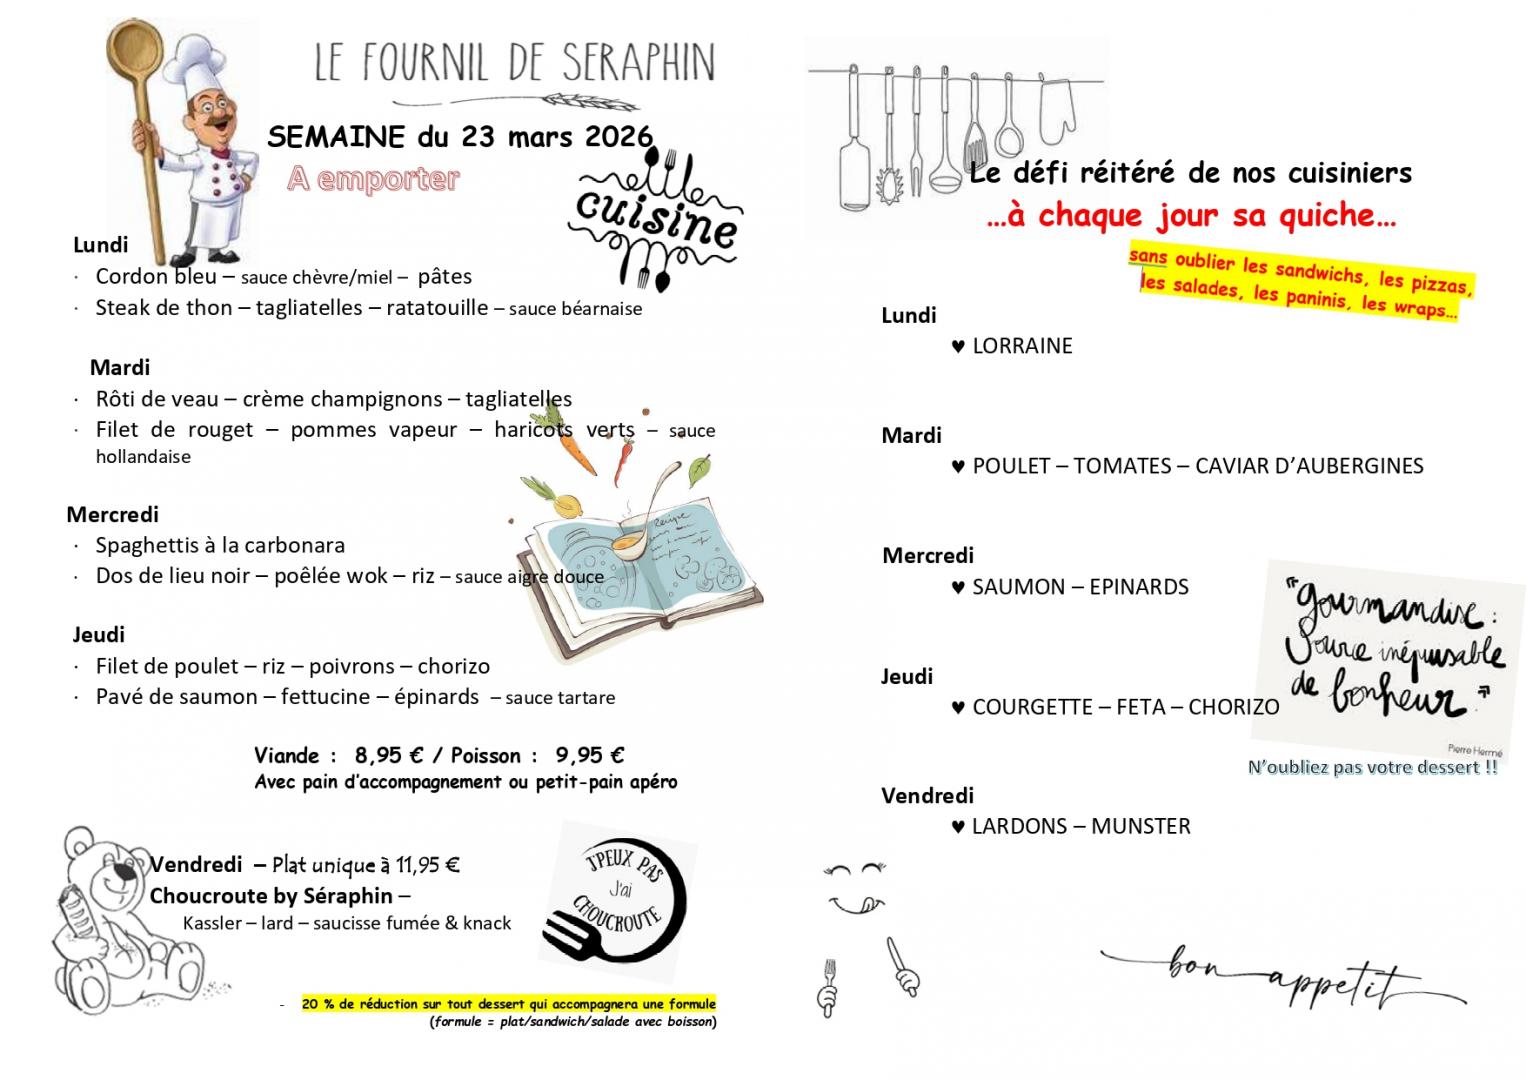 LE FOURNIL DE SERAPHIN
SEMAINE du 23 mars 2026
A emporter
cuisine
Lundi
· Cordon bleu – sauce chèvre/miel – pâtes
· Steak de thon – tagliatelles – ratatouille – sauce béarnaise
Mardi
· Rôti de veau – crème champignons – tagliatelles
· Filet de rouget – pommes vapeur – haricots verts – sauce
hollandaise
Mercredi
· Spaghettis à la carbonara
· Dos de lieu noir – poêlée wok – riz – sauce aigre douce
Jeudi
· Filet de poulet – riz – poivrons – chorizo
· Pavé de saumon – fettucine – épinards – sauce tartare
Viande : 8,95 € / Poisson : 9,95 €
Avec pain d'accompagnement ou petit-pain apéro
Vendredi – Plat unique à 11,95 €
Choucroute by Séraphin –
Kassler – lard – saucisse fumée & knack
J'PEUX PAS
J'ai
CHOUCROUTE
- 20 % de réduction sur tout dessert qui accompagnera une formule
(formule = plat/sandwich/salade avec boisson)
Le défi réitéré de nos cuisiniers
...à chaque jour sa quiche...
sans oublier les sandwichs, les pizzas,
les salades, les paninis, les wraps...
Lundi
♥ LORRAINE
Mardi
♥ POULET – TOMATES – CAVIAR D'AUBERGINES
Mercredi
♥ SAUMON – EPINARDS
Jeudi
♥ COURGETTE – FETA – CHORIZO
"gourmandise :
source inépuisable
de bonheur."
Pierre Hermé
N'oubliez pas votre dessert !!
Vendredi
♥ LARDONS – MUNSTER
bon appetit